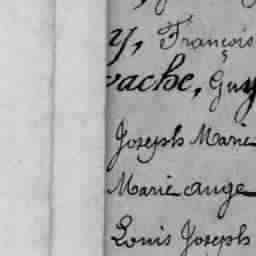 y, François
vache, Guy
Joseph Marie
Marie ange
Louis Joseph